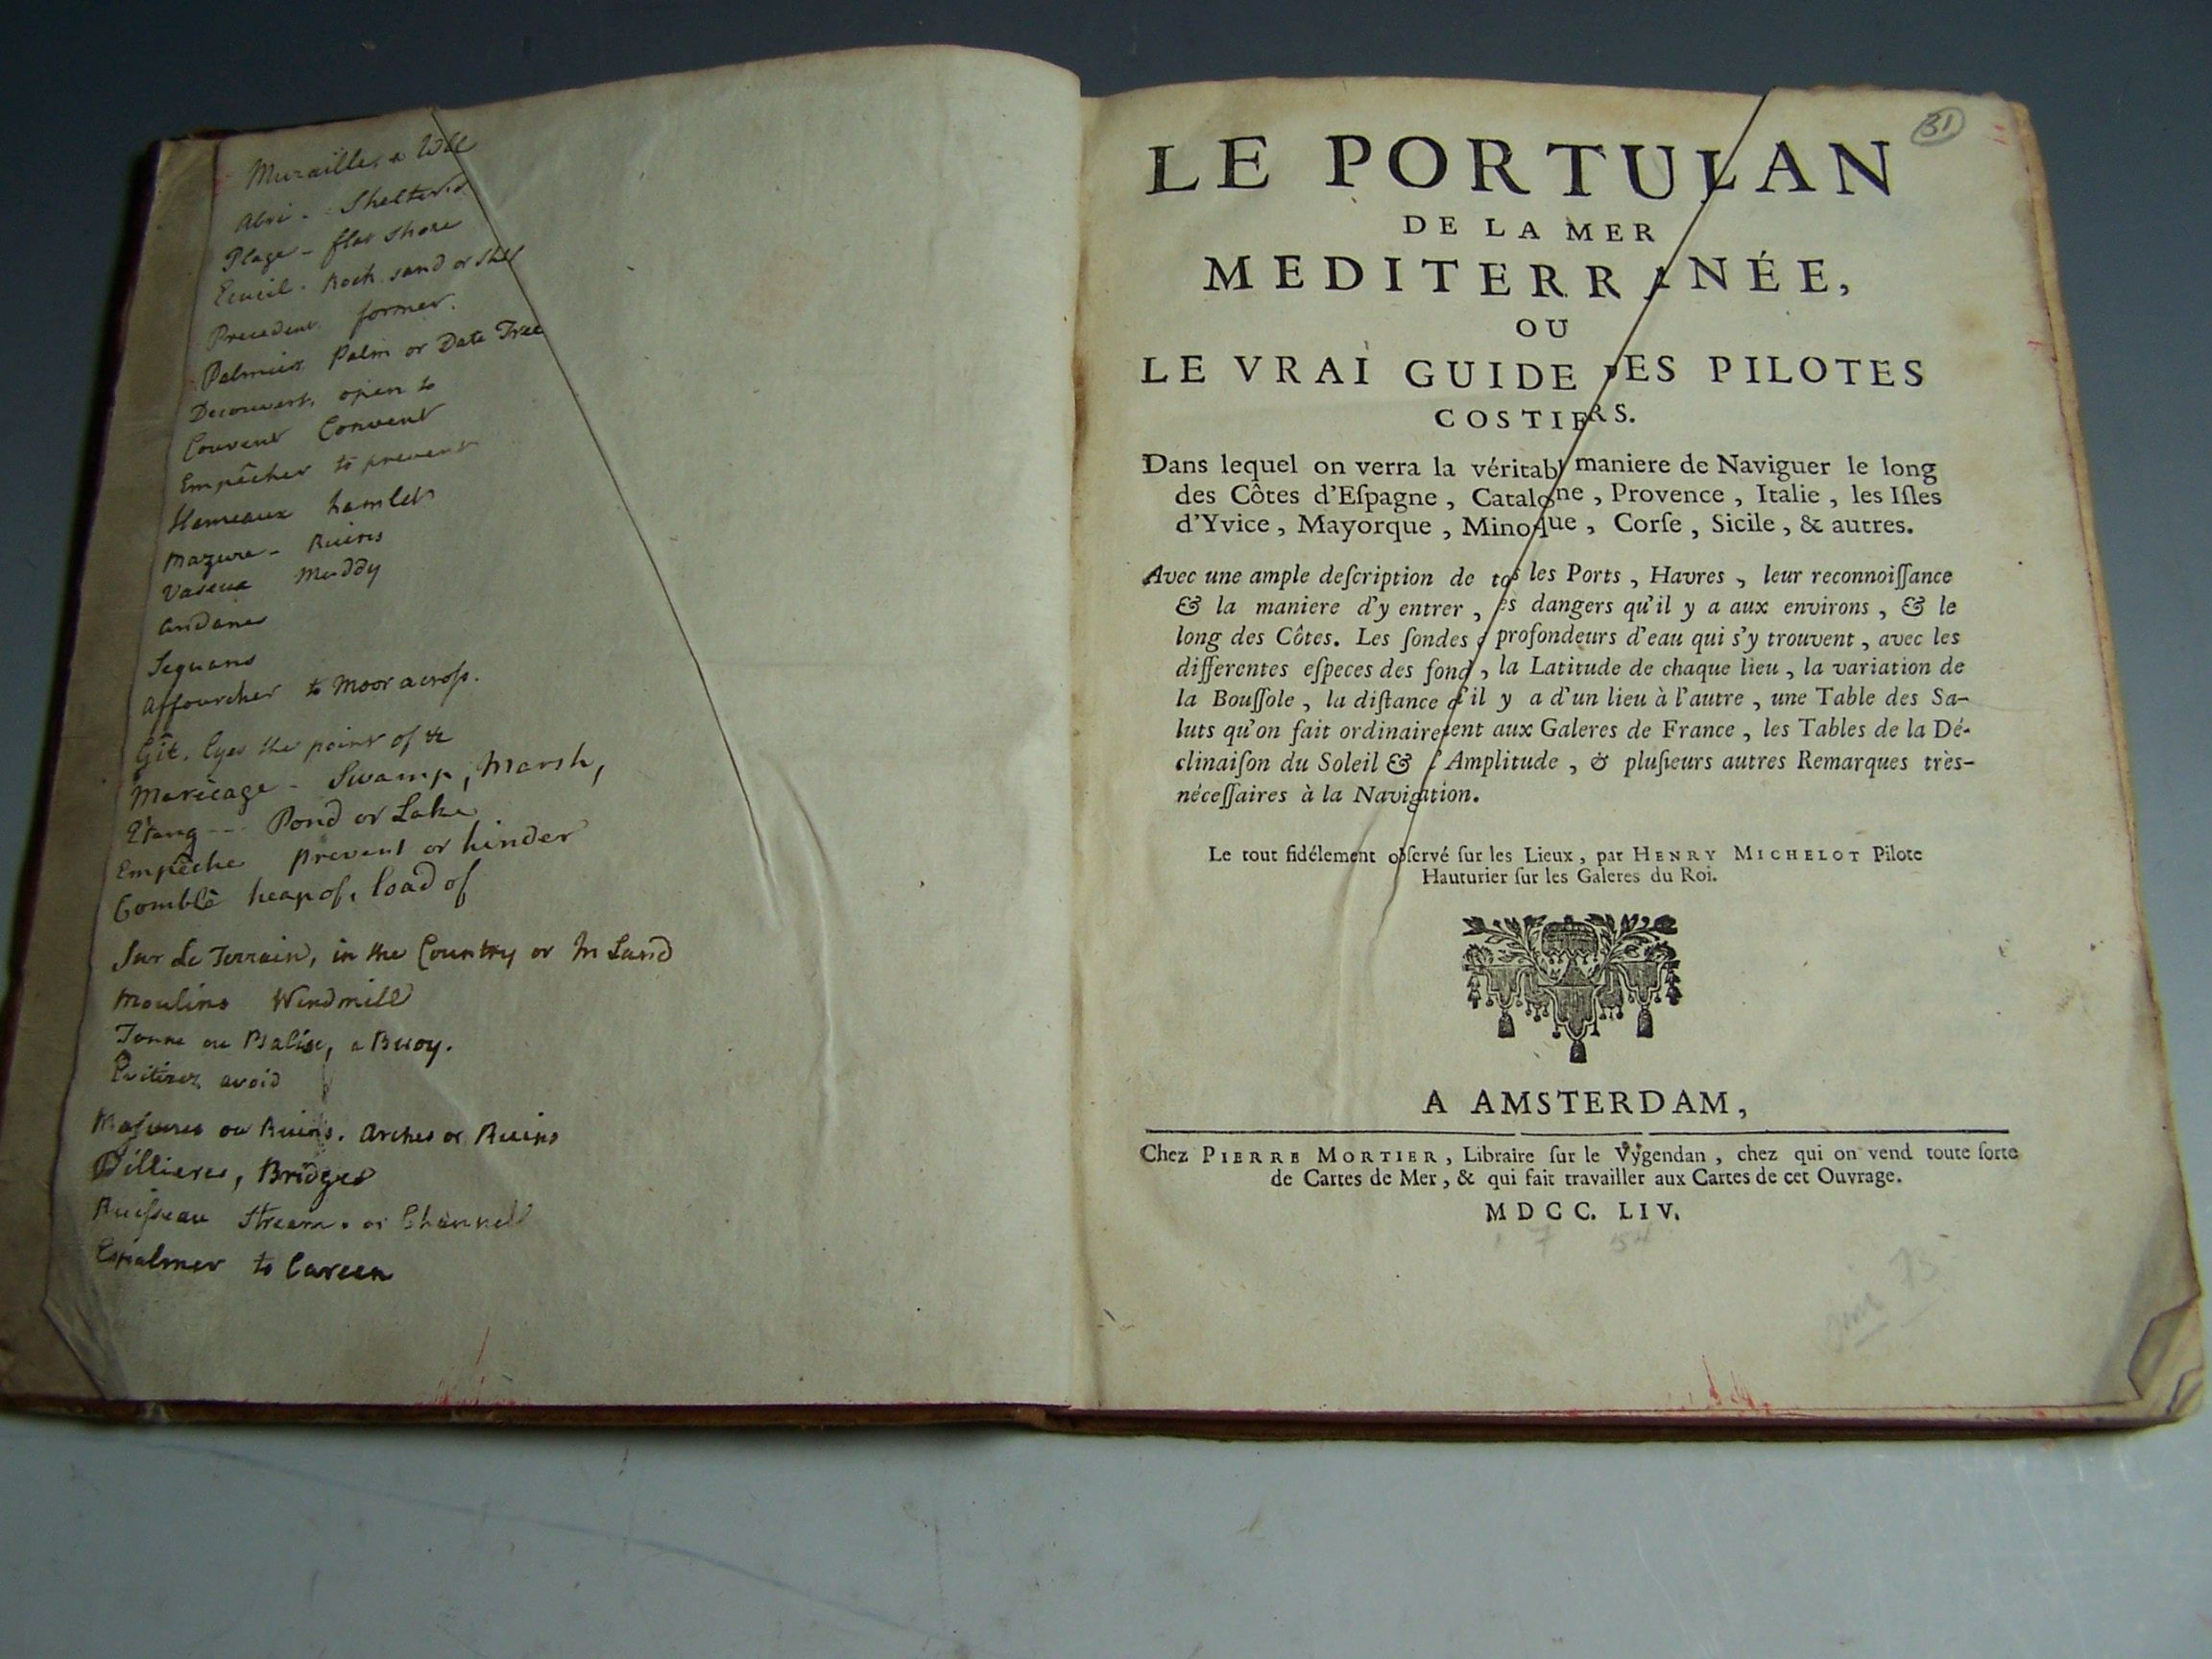 Muraille, a Wall
Abri - Shelter'd
Plage - flat shore
Ecueil. Rock sand or shel
Precedent former.
Palmier Palm or Date Tree
Decouvert, open to
Couvent Convent
Empêcher to prevent
Hameaux hamlets
Mazure - Ruins
Vaseux Muddy
andanes
Sequans
Affourcher to Moor across.
Gît. lyes the point of &c
Marêcage - Swamp, Marsh,
Etang -- Pond or Lake
Empêche prevent or hinder
Comblé heap of, load of
Sur Le Terrain, in the Country or In Land
Moulins Windmill
Tonne ou Balise, a Buoy.
Evitirez avoid
Masures ou Ruins. Arches or Ruins
Pillieres, Bridges
Ruisseau Stream. or Channell
Espalmer to Careen
31
LE PORTULAN
DE LA MER
MEDITERRANÉE,
OU
LE VRAI GUIDE DES PILOTES
COSTIERS.
Dans lequel on verra la véritabl maniere de Naviguer le long
des Côtes d'Eſpagne, Catalogne, Provence, Italie, les Iſles
d'Yvice, Mayorque, Minorque, Corſe, Sicile, & autres.
Avec une ample deſcription de tos les Ports, Havres, leur reconnoiſſance
& la maniere d'y entrer, es dangers qu'il y a aux environs, & le
long des Côtes. Les ſondes & profondeurs d'eau qui s'y trouvent, avec les
differentes eſpeces des fond, la Latitude de chaque lieu, la variation de
la Bouſſole, la diſtance qu'il y a d'un lieu à l'autre, une Table des Sa-
luts qu'on fait ordinairement aux Galeres de France, les Tables de la Dé-
clinaiſon du Soleil & l'Amplitude, & pluſieurs autres Remarques très-
néceſſaires à la Navigation.
Le tout fidélement obſervé ſur les Lieux, par HENRY MICHELOT Pilote
Hauturier ſur les Galeres du Roi.
A AMSTERDAM,
Chez PIERRE MORTIER, Libraire ſur le Vygendan, chez qui on vend toute ſorte
de Cartes de Mer, & qui fait travailler aux Cartes de cet Ouvrage.
MDCC. LIV.
1 7 54
75